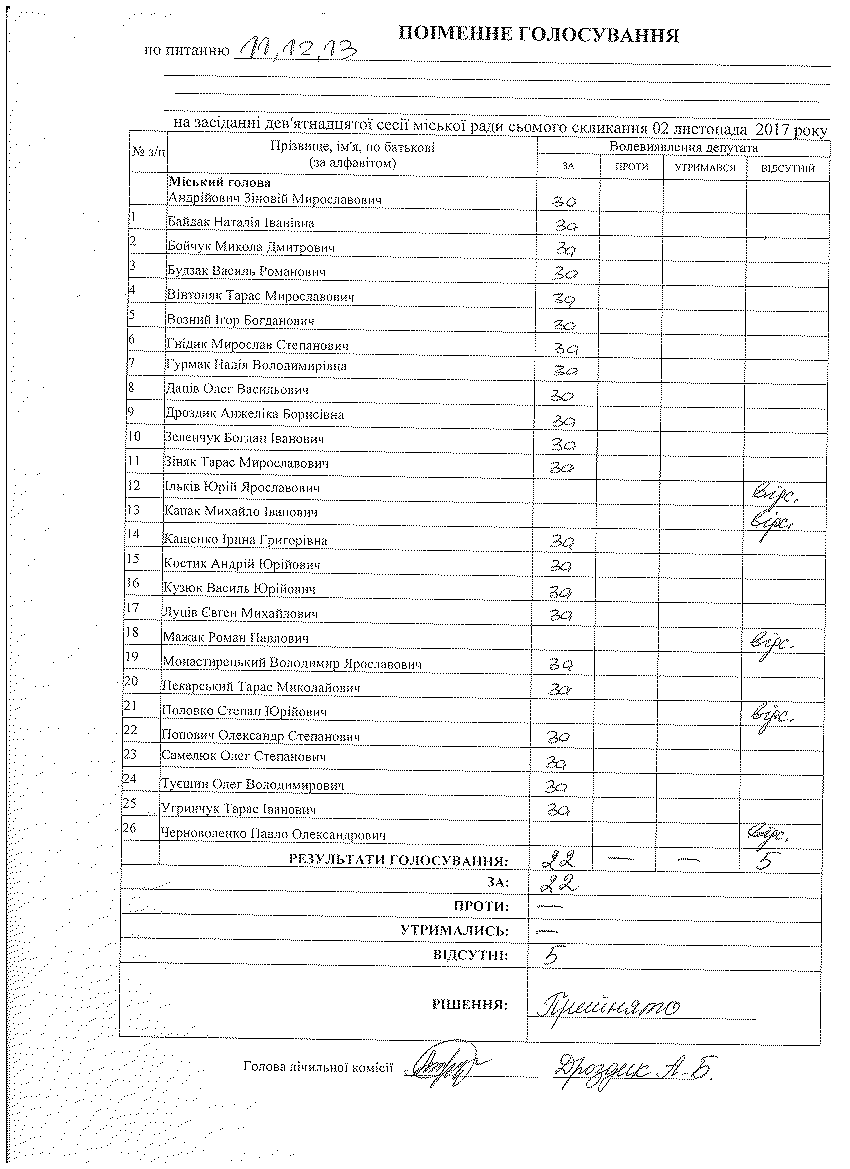 ПОІМЕННЕ ГОЛОСУВАННЯ
по питанню 11,12,13
на засіданні дев'ятнадцятої сесії міської ради сьомого скликання 02 листопада 2017 року
№ з/п Прізвище, ім'я, по батькові (за алфавітом) Волевиявлення депутата
ЗА ПРОТИ УТРИМАВСЯ ВІДСУТНІЙ
Міський голова
Андрійович Зіновій Мирославович за
1 Байдак Наталія Іванівна за
2 Бойчук Микола Дмитрович за
3 Будзак Василь Романович за
4 Вівтоняк Тарас Мирославович за
5 Возний Ігор Богданович за
6 Гнідик Мирослав Степанович за
7 Гурмак Надія Володимирівна за
8 Даців Олег Васильович за
9 Дроздик Анжеліка Борисівна за
10 Зеленчук Богдан Іванович за
11 Зіняк Тарас Мирославович за
12 Ільків Юрій Ярославович відс.
13 Капак Михайло Іванович відс.
14 Кащенко Ірина Григорівна за
15 Костик Андрій Юрійович за
16 Кузюк Василь Юрійович за
17 Луців Євген Михайлович за
18 Мажак Роман Павлович відс.
19 Монастирецький Володимир Ярославович за
20 Пекарський Тарас Миколайович за
21 Половко Степан Юрійович відс.
22 Попович Олександр Степанович за
23 Самелюк Олег Степанович за
24 Туєшин Олег Володимирович за
25 Угринчук Тарас Іванович за
26 Черноволенко Павло Олександрович відс.
РЕЗУЛЬТАТИ ГОЛОСУВАННЯ: 22 — — 5
ЗА: 22
ПРОТИ: —
УТРИМАЛИСЬ: —
ВІДСУТНІ: 5
РІШЕННЯ: Прийнято
Голова лічильної комісії Дроздик А.Б.